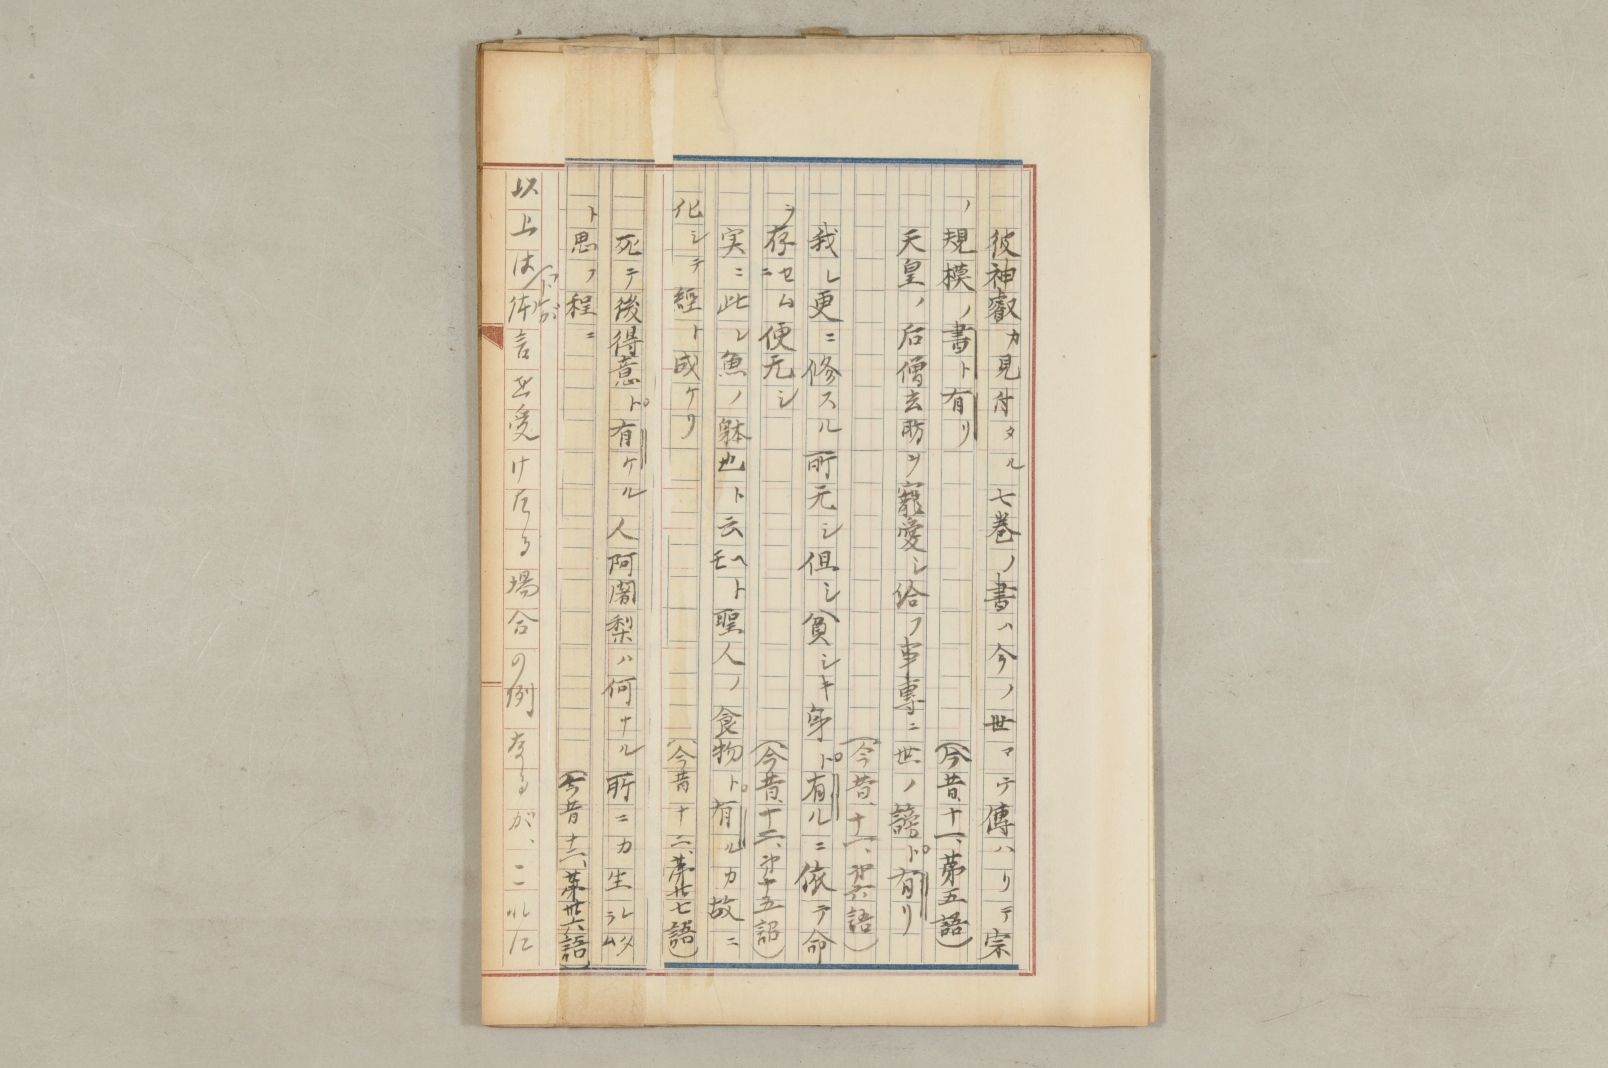 彼神叡カ見付タル七巻ノ書ハ今ノ世マテ傳ハリテ宗
ノ規模ノ書ト有リ
(今昔、十一、第五語)
天皇ノ后僧玄昉ヲ寵愛シ給フ事専ニ世ノ謗ト有リ
(今昔、十一、第六語)
我レ更ニ修スル所无シ但シ貧シキ身ト有ルニ依テ命
ヲ存セムニ便无シ
(今昔、十二、第十五語)
実ニ此レ魚ノ躰也ト云ヘトモ聖人ノ食物ト有ルカ故ニ
化シテ經ト成ケリ
(今昔十二、第廿七語)
死テ後得意ト有ケル人阿闍梨ハ何ナル所ニカ生レタラム
ト思フ程ニ
(今昔十二、第卅六語)
以上は「ト」が体言を受けたる場合の例なるが、これに